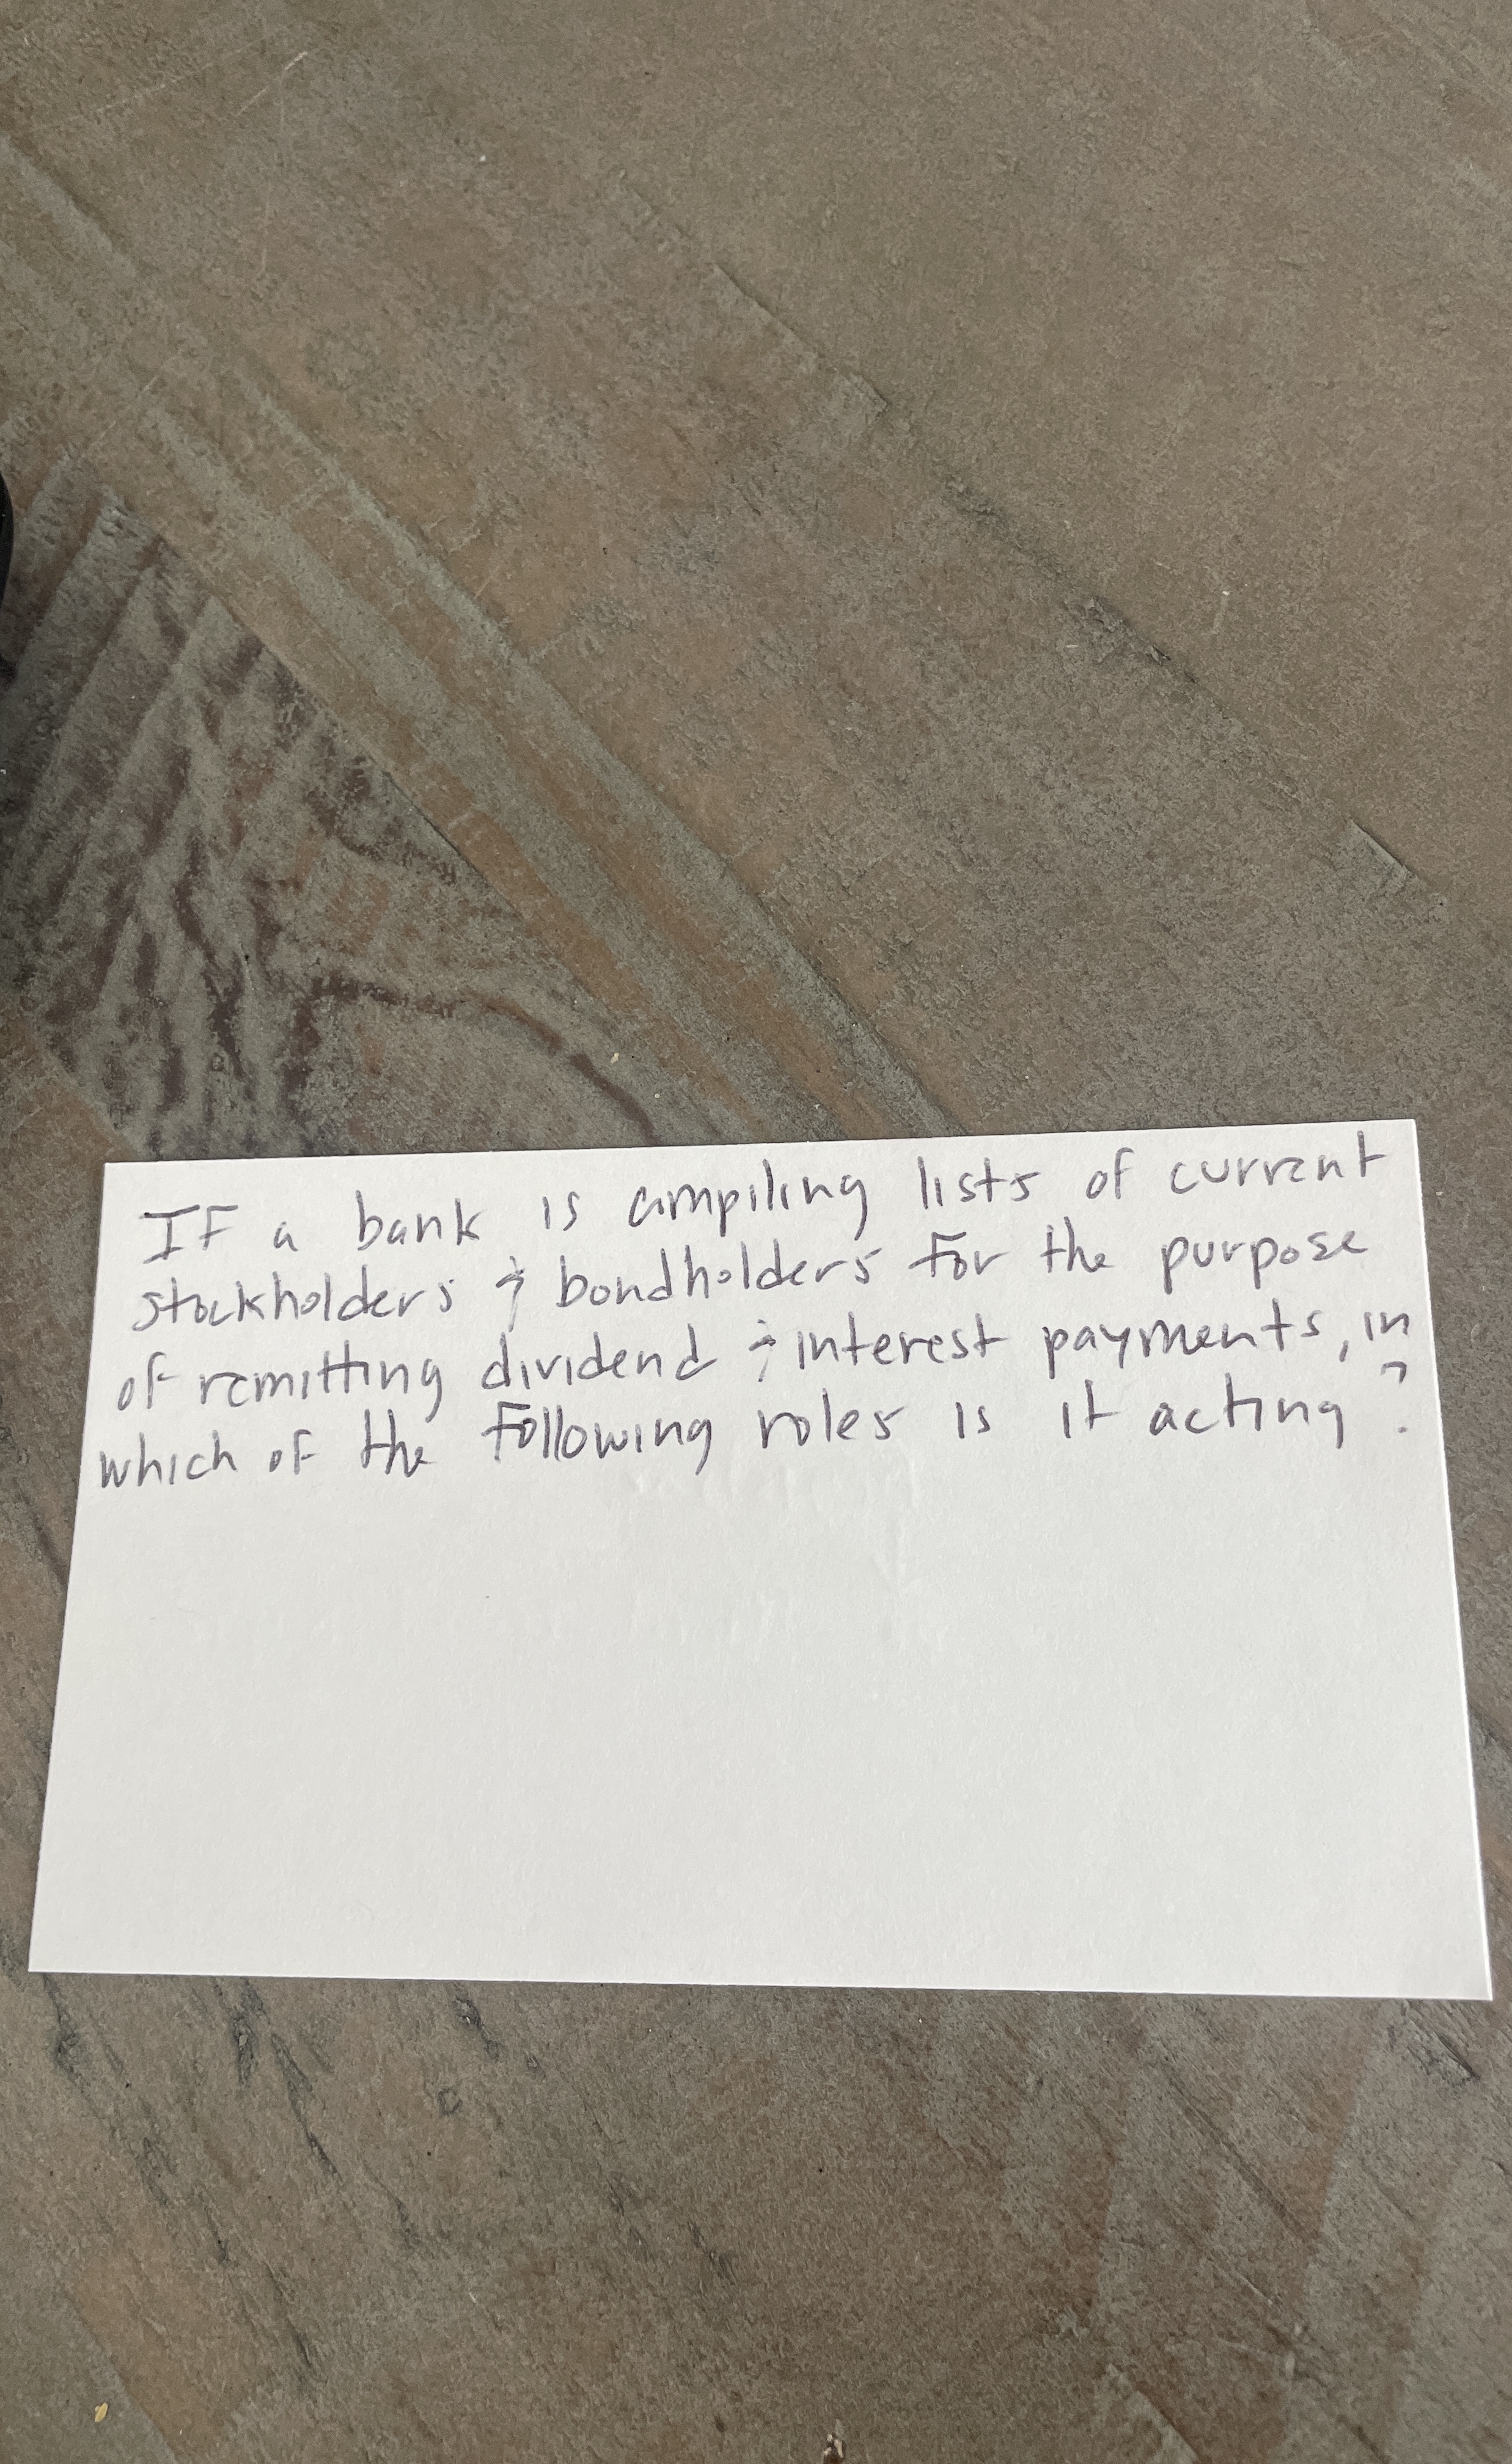 IF a bank is compiling lists of current
stockholders & bondholders for the purpose
of remitting dividend & interest payments, in
which of the following roles is it acting?